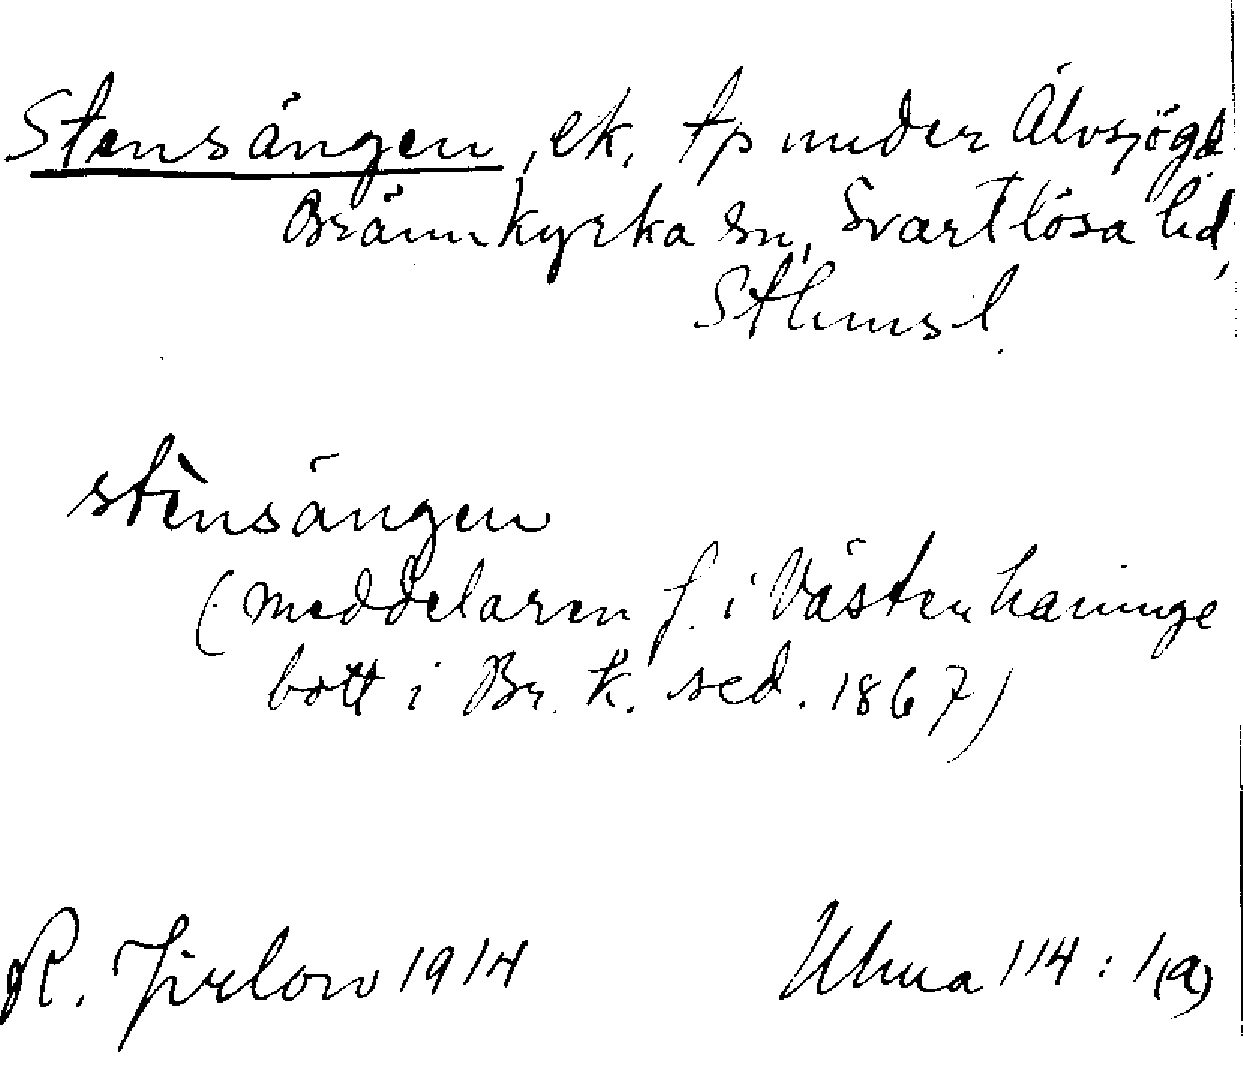 Stensängen, ek. tp under Älvsjögd
Brännkyrka sn, Svartlösa hd,
Sthmsl.
stènsängen
(meddelaren f. i Västerhaninge
bott i Br. k. sed. 1867)
R. Jirlow 1914 Ulma 114:1(a)